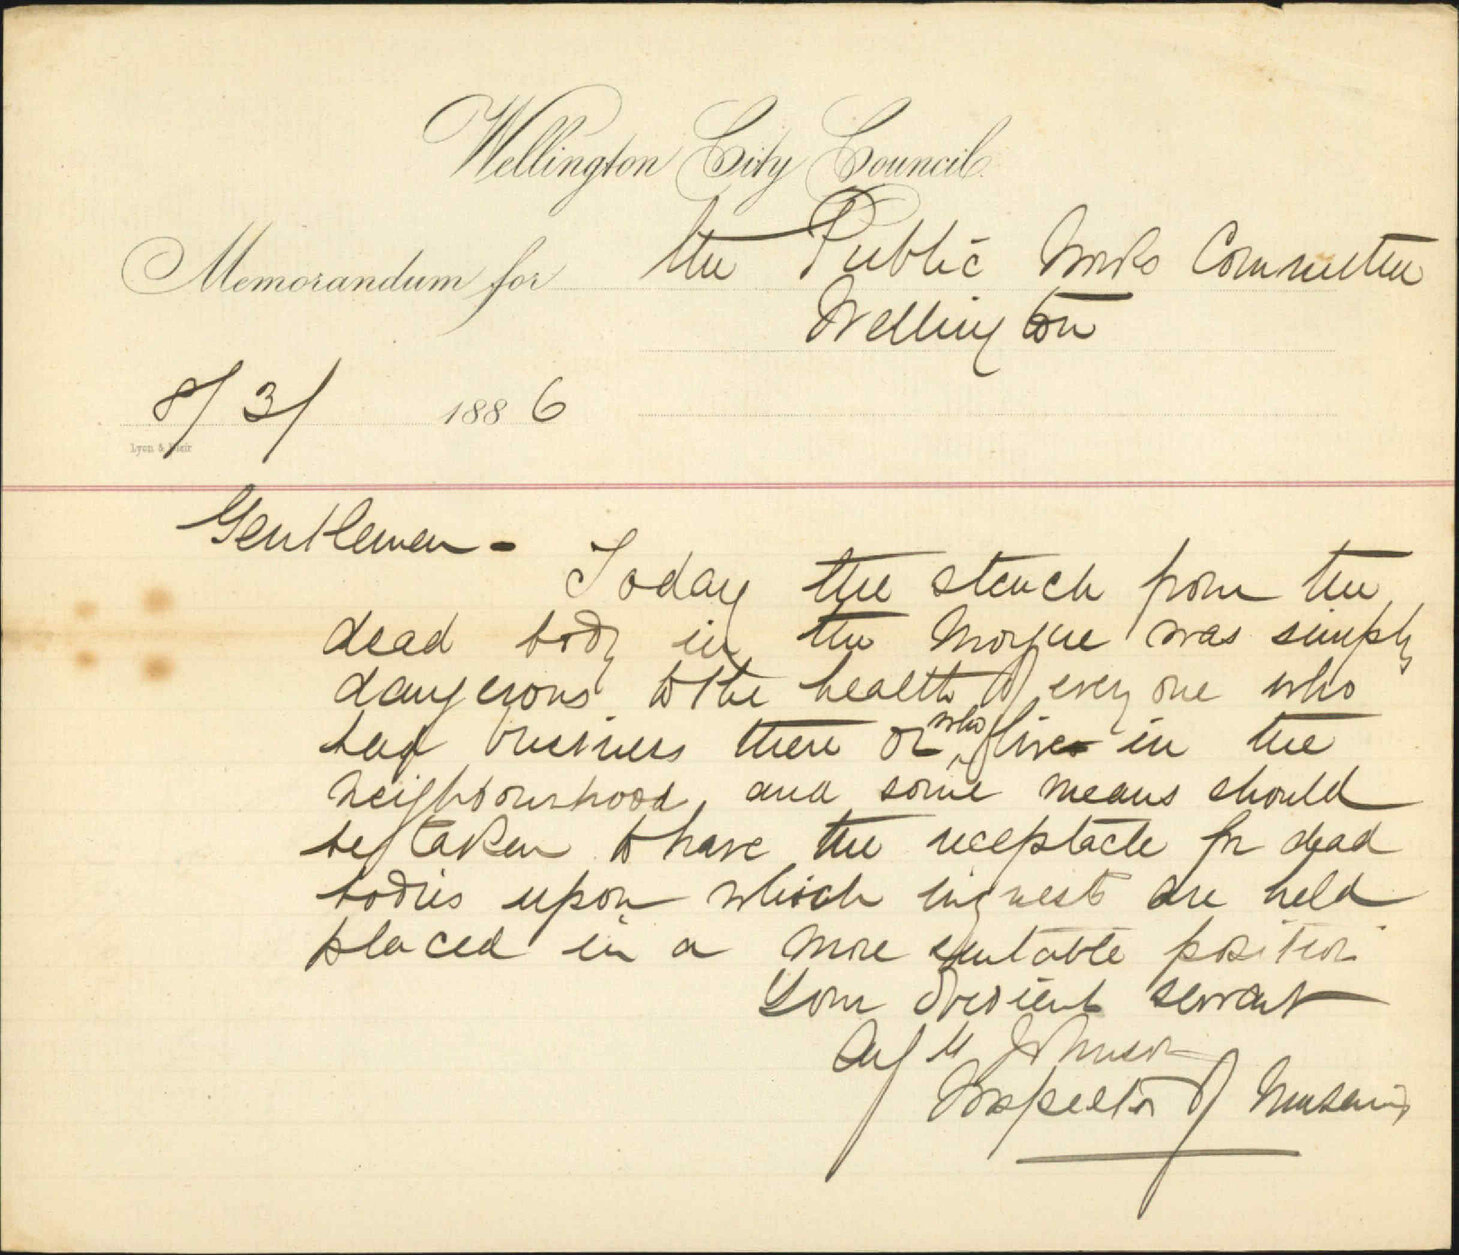 Wellington City Council.
Memorandum for the Public Works Committee
Wellington
8/3/ 1886
Lyon & Blair
Gentlemen -
Today the stench from the
dead body in the Morgue was simply
dangerous to the health of every one who
had business there or who live in the
neighbourhood, and some means should
be taken to have the receptacle for dead
bodies upon which inquests are held
placed in a more suitable position
Your obedient servant
Johnson
Inspector of Nuisances